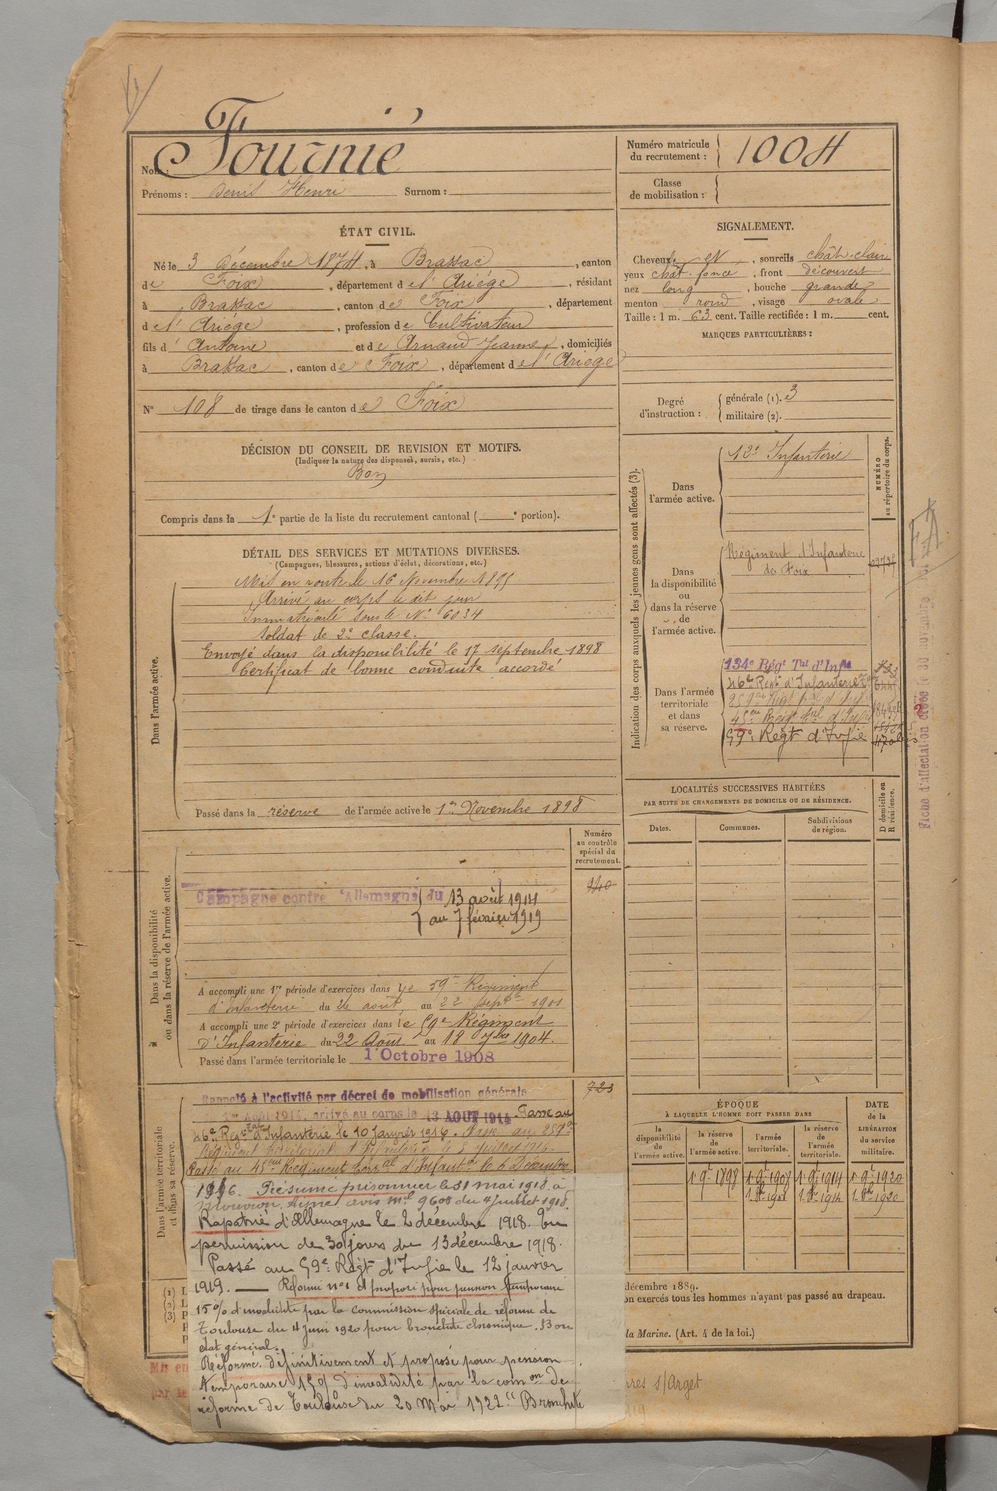 Nom : Fournié
Prénoms : Denis Henri Surnom :
Numéro matricule du recrutement : 1004
Classe de mobilisation :
ÉTAT CIVIL.
Né le 3 Décembre 1874, à Brassac, canton
de Foix, département de l'Ariège, résidant
à Brassac, canton de Foix, département
de l'Ariége, profession de Cultivateur
fils d'Antoine et de Arnaud Jeanne, domiciliés
à Brassac, canton de Foix, département de l'Ariège
N° 108 de tirage dans le canton de Foix
SIGNALEMENT.
Cheveux et sourcils chât-clair
yeux chât. foncé, front découvert
nez long, bouche grande
menton rond, visage ovale
Taille : 1 m. 63 cent. Taille rectifiée : 1 m. cent.
MARQUES PARTICULIÈRES :
Degré d'instruction : générale (1). 3
militaire (2).
DÉCISION DU CONSEIL DE REVISION ET MOTIFS.
(Indiquer la nature des dispenses, sursis, etc.)
Bon
Compris dans la 1e partie de la liste du recrutement cantonal ( e portion).
DÉTAIL DES SERVICES ET MUTATIONS DIVERSES.
(Campagnes, blessures, actions d'éclat, décorations, etc.)
Dans l'armée active.
Mis en route le 16 Novembre 1895
Arrivé au corps le dit jour
Immatriculé sous le N° 6034
Soldat de 2e classe.
Envoyé dans la disponibilité le 17 septembre 1898
Certificat de bonne conduite accordé
Passé dans la réserve de l'armée active le 1er Novembre 1898
Indication des corps auxquels les jeunes gens sont affectés (3).
NUMÉRO au répertoire du corps.
Dans l'armée active.
12e Infanterie
Dans la disponibilité ou dans la réserve de l'armée active.
Régiment d'Infanterie
de Foix
Dans l'armée territoriale et dans sa réserve.
134e Régt Tal d'Infie
46e Regt d'Infanterie
45me Regt tal d'Infie
59e Régt d'Infie
LOCALITÉS SUCCESSIVES HABITÉES
PAR SUITE DE CHANGEMENTS DE DOMICILE OU DE RÉSIDENCE.
Dates.
Communes.
Subdivisions de région.
D domicile ou R résidence.
Dans la disponibilité ou dans la réserve de l'armée active.
Numéro au contrôle spécial du recrutement.
940
Campagne contre l'Allemagne du 13 août 1914
au 7 février 1919
A accompli une 1re période d'exercices dans le 59me Régiment
d'Infanterie du 26 août au 22 septbre 1901
A accompli une 2e période d'exercices dans le 59e Régiment
D'Infanterie du 22 Août au 18 7bre 1904.
Passé dans l'armée territoriale le 1 Octobre 1908
Dans l'armée territoriale et dans sa réserve.
723
Rappelé à l'activité par décret de mobilisation générale
du 1er Août 1914, arrivé au corps le 13 AOUT 1914. Passé au
46e Regt d'Infanterie le 10 Janvier 1916. Passé au
Passé au 45me Régiment Torial d'Infant. le 6 Décembre
1916. Présumé prisonnier le 31 mai 1918. à
avis ml 9608 du 4 Juillet 1918.
Rapatrié d'Allemagne le 2 décembre 1918. En
permission de 30 jours du 13 décembre 1918.
Passé au 59e Régt d'Infie le 12 janvier
1919. — Réformé n° 1 et proposé pour pension temporaire
15 % d'invalidité par la commission spéciale de réforme de
Toulouse du 4 juin 1920 pour bronchite chronique. Bon
état général.
Réformé définitivement et proposé pour pension
temporaire 15 % d'invalidité par la comon de
réforme de Toulouse du 20 Mai 1922 "Bronchite
ÉPOQUE
À LAQUELLE L'HOMME DOIT PASSER DANS
la disponibilité de l'armée active.
la réserve de l'armée active.
l'armée territoriale.
la réserve de l'armée territoriale.
DATE de la LIBÉRATION du service militaire.
1 9e 1898
décembre 1889.
on exercés tous les hommes n'ayant pas passé au drapeau.
la Marine. (Art. 4 de la loi.)
s/Arget